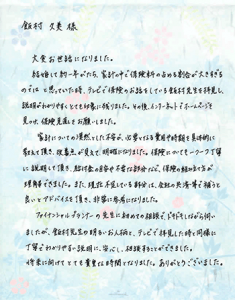 飯村 久美 様
大変お世話になりました。
結婚して約一年がたち、家計の中で保険料の占める割合が大きすぎる
のでは と思っていた時、テレビで保険のお話をしている飯村先生を拝見し、
説明がわかりやすくとても印象に残りました。その後、インターネットでホームページを
見つけ、保険見直しをお願いしました。
家計についての漠然とした不安が、必要となる費用や時期を具体的に
教えて頂き、改善点が見えて明確になりました。保険についても一つ一つ丁寧
に説明して頂き、給付金の内容や不要な部分など、保険の組み立て方が
理解できました。また、現在不足している部分は、会社の共済等で補うと
良いとアドバイスを頂き、非常に参考になりました。
ファイナンシャルプランナーの先生に初めての相談で、ドキドキしながら伺い
ましたが、飯村先生の明るいお人柄と、テレビで拝見した時と同様に
丁寧でわかりやすい説明に、安心し、相談することができました。
将来に向けてとても貴重な時間となりました。ありがとうございました。